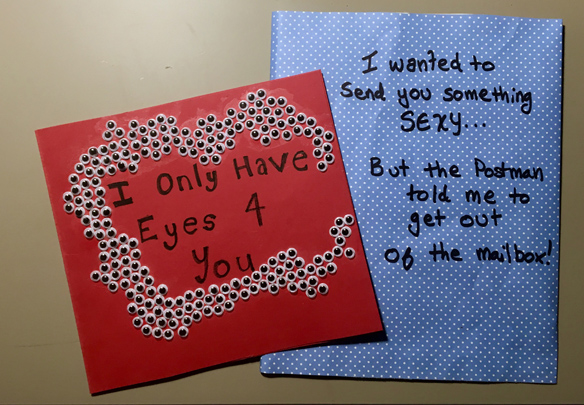 I Only Have
Eyes 4
You
I wanted to
Send you something
SEXY...
But the Postman
told me to
get out
of the mailbox!